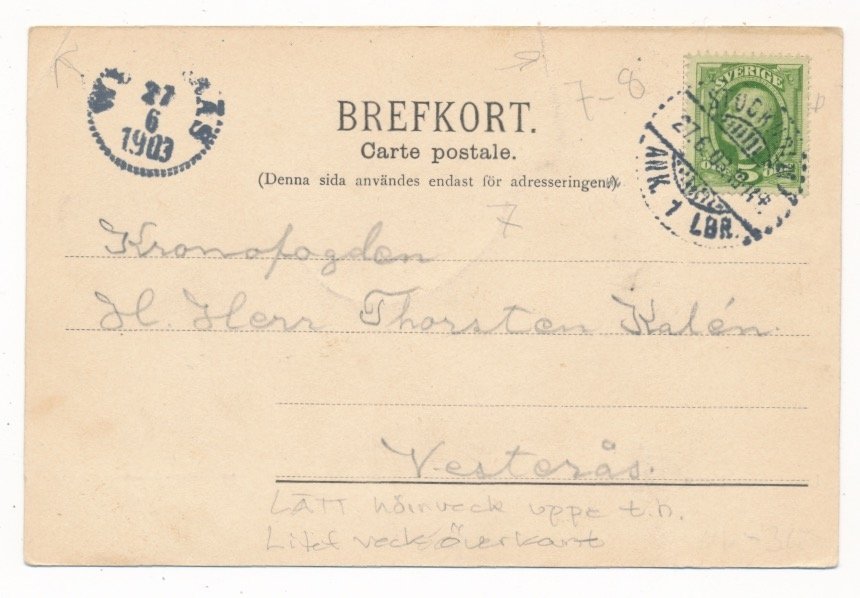 27
6
1903
7-8
SVERIGE
5
STOCKHOLM
27.6.03
ANK. 1 LBR.
BREFKORT.
Carte postale.
(Denna sida användes endast för adresseringen.)
7
Kronofogden
H. Herr Thorsten Kalén.
Vesterås.
LÄTT hörnveck uppe t.h.
Litet veck överkant